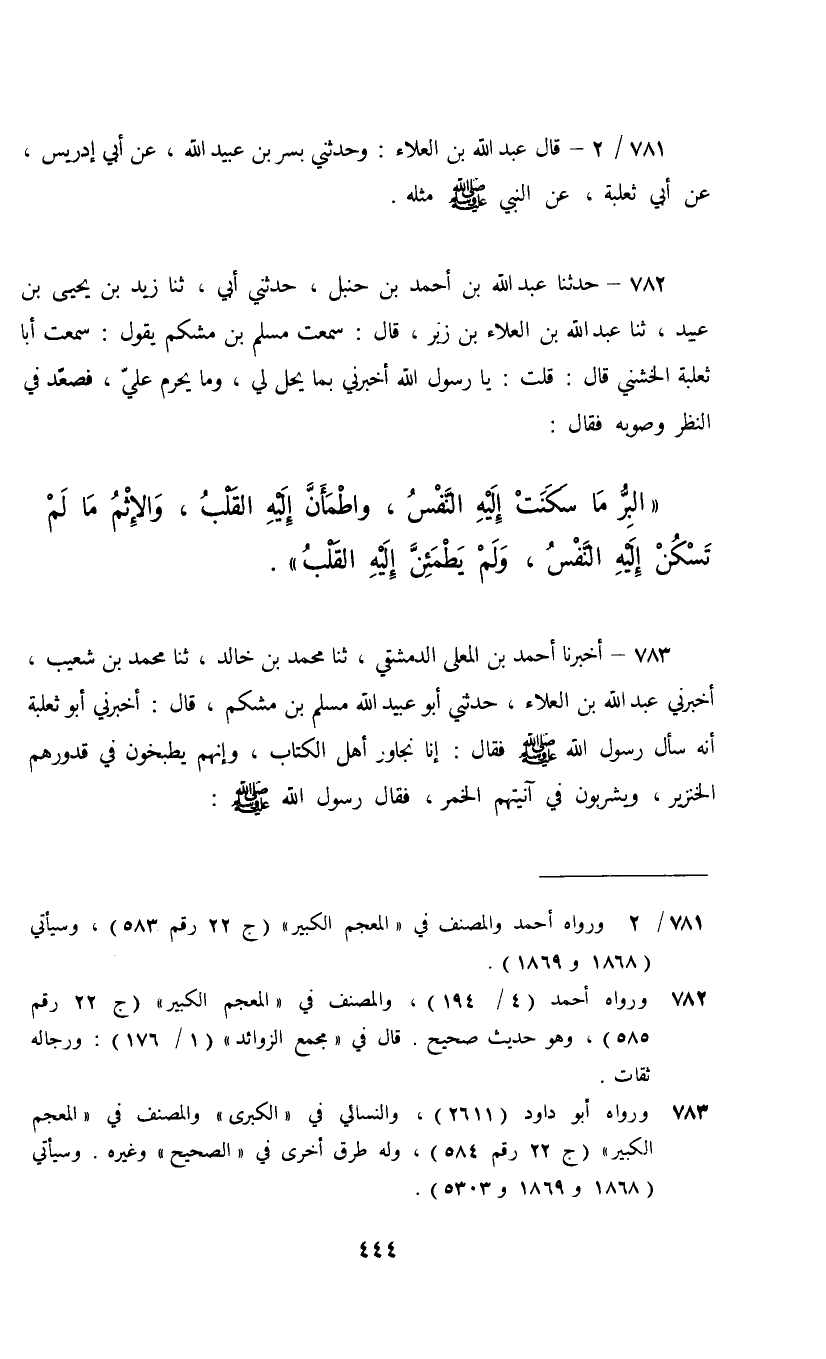 ٧٨١ / ٢ – قال عبد الله بن العلاء : وحدثني بسر بن عبيد الله ، عن أبي إدريس ،
عن أبي ثعلبة ، عن النبي ﷺ مثله .
٧٨٢ – حدثنا عبد الله بن أحمد بن حنبل ، حدثني أبي ، ثنا زيد بن يحيى بن
عبيد ، ثنا عبد الله بن العلاء بن زبْر ، قال : سمعت مسلم بن مشكم يقول : سمعت أبا
ثعلبة الخشني قال : قلت : يا رسول الله أخبرني بما يحل لي ، وما يحرم عليّ ، فصعّد في
النظر وصوبه فقال :
« البِرُّ مَا سَكَنَتْ إِلَيْهِ النَّفْسُ ، واطْمَأَنَّ إِلَيْهِ القَلْبُ ، وَالإِثْمُ مَا لَمْ
تَسْكُنْ إِلَيْهِ النَّفْسُ ، وَلَمْ يَطْمَئِنَّ إِلَيْهِ القَلْبُ » .
٧٨٣ – أخبرنا أحمد بن المعلى الدمشقي ، ثنا محمد بن خالد ، ثنا محمد بن شعيب ،
أخبرني عبد الله بن العلاء ، حدثني أبو عبيد الله مسلم بن مشكم ، قال : أخبرني أبو ثعلبة
أنه سأل رسول الله ﷺ فقال : إنا نجاور أهل الكتاب ، وإنهم يطبخون في قدورهم
الخنزير ، ويشربون في آنيتهم الخمر ، فقال رسول الله ﷺ :
٧٨١/ ٢ ورواه أحمد والمصنف في « المعجم الكبير » ( ج ٢٢ رقم ٥٨٣ ) ، وسيأتي
( ١٨٦٨ و ١٨٦٩ ) .
٧٨٢ ورواه أحمد ( ٤ / ١٩٤ ) ، والمصنف في « المعجم الكبير » ( ج ٢٢ رقم
٥٨٥ ) ، وهو حديث صحيح . قال في « مجمع الزوائد » ( ١ / ١٧٦ ) : ورجاله
ثقات .
٧٨٣ ورواه أبو داود ( ٢٦١١ ) ، والنسائي في « الكبرى » والمصنف في « المعجم
الكبير » ( ج ٢٢ رقم ٥٨٤ ) ، وله طرق أخرى في « الصحيح » وغيره . وسيأتي
( ١٨٦٨ و ١٨٦٩ و ٥٣٠٣ ) .
٤٤٤